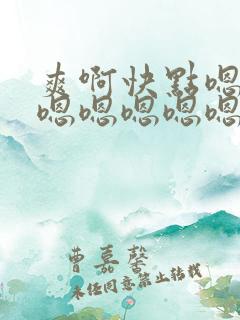 爽啊快點嗯
嗯嗯嗯嗯嗯
曹嘉馨
未经同意禁止转载